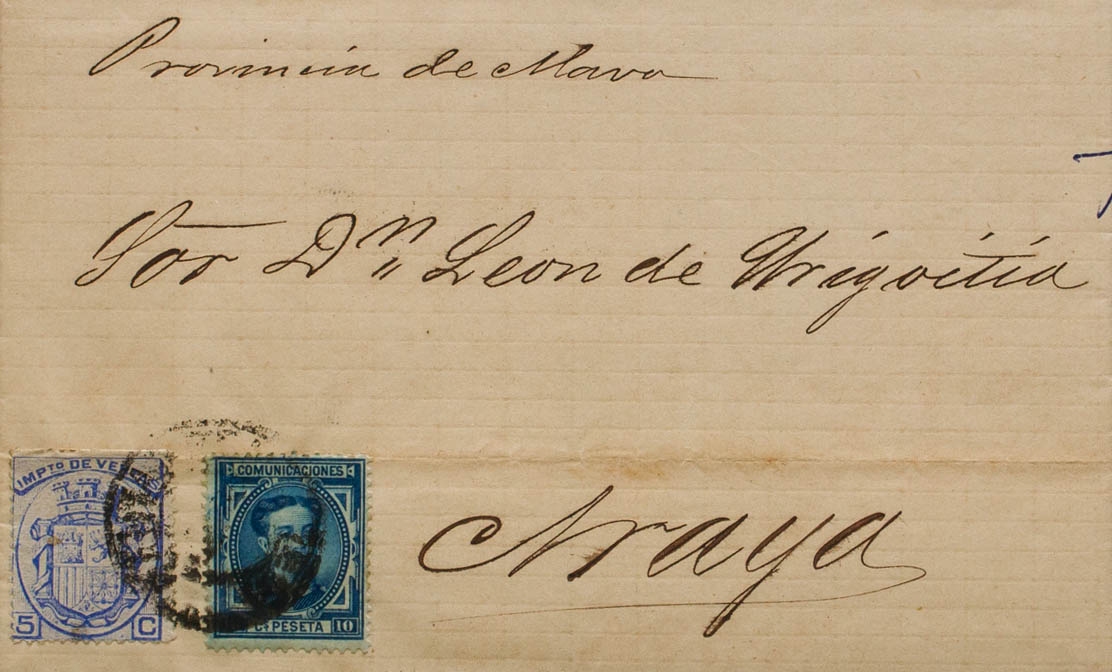 Provincia de Alava
Sor Dn Leon de Urigoitia
Araya
IMPTO DE VENTAS
5 C
COMUNICACIONES
CS PESETA 10